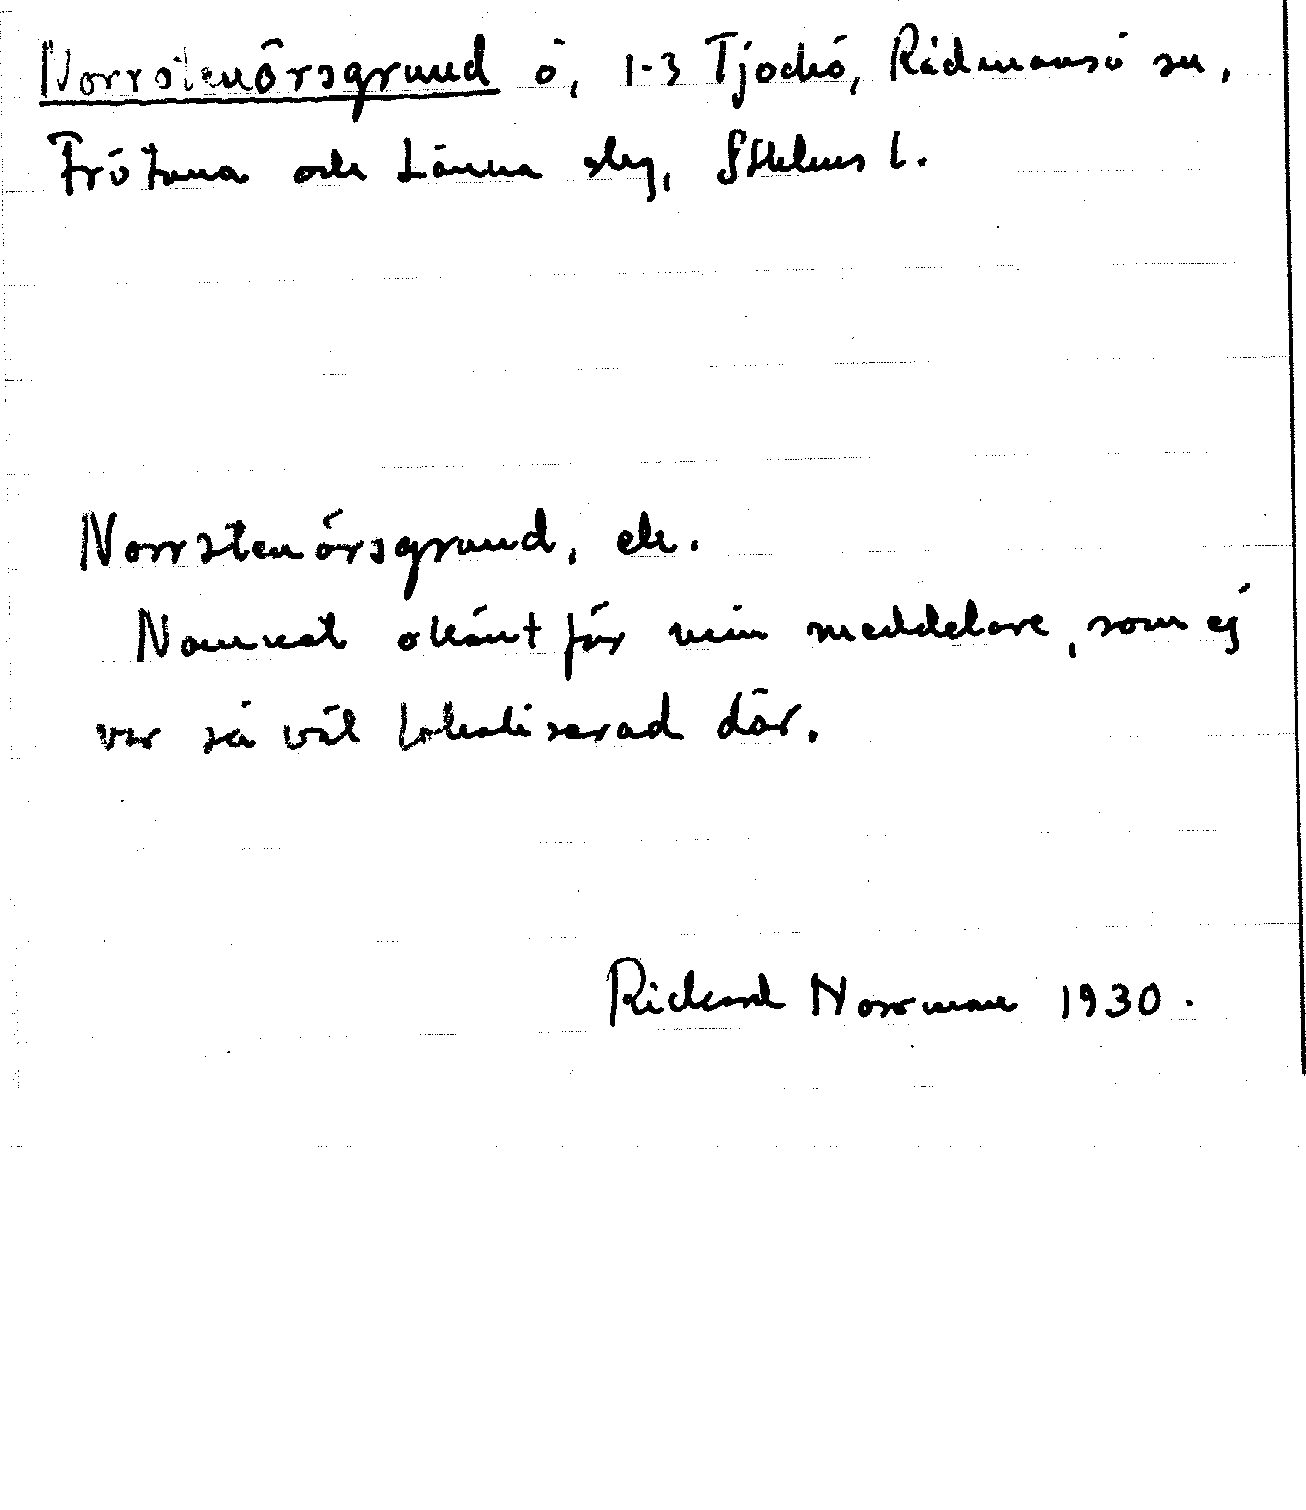 Norrstenörsgrund ö, 1-3 Tjockö, Rådmansö sn,
Frötuna och Länna slg, Sthlms l.
Norrstenörsgrund, ek.
Namnet okänt för min meddelare, som ej
var så väl lokaliserad där.
Rickard Norrman 1930.